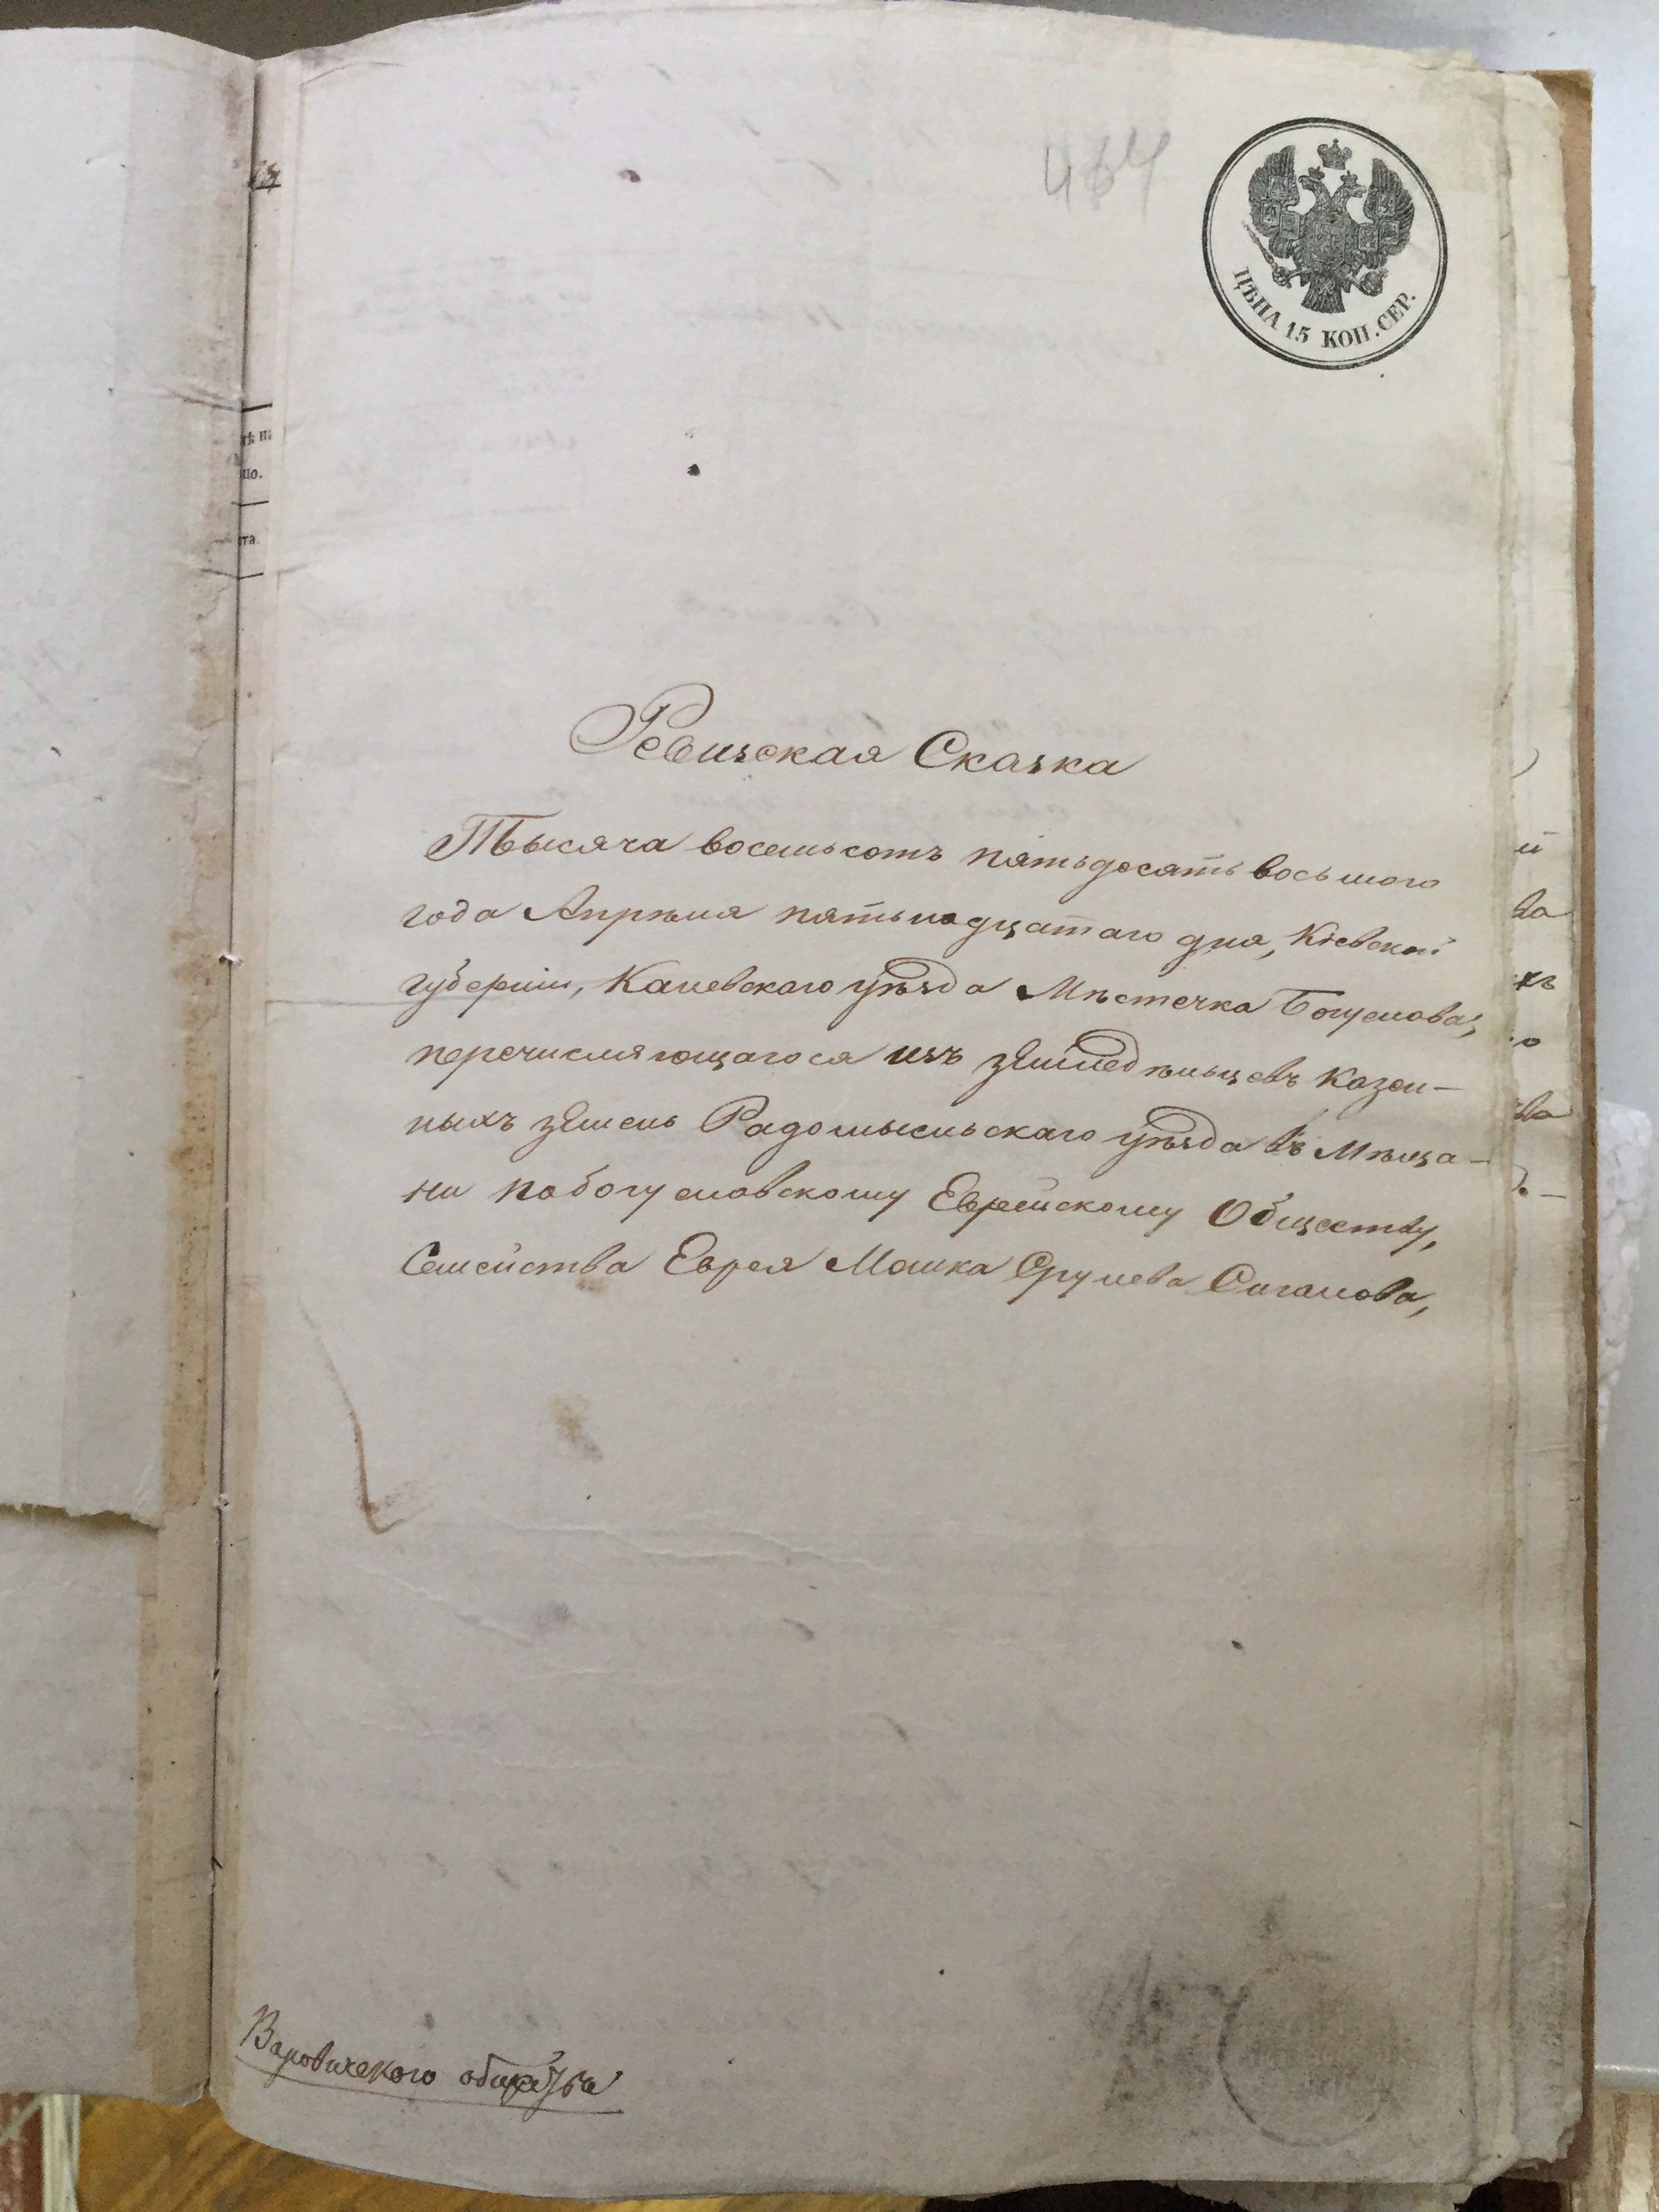 464
ЦѢНА 15 КОП. СЕР.
Ревизская Сказка
Тысяча восемьсотъ пятьдесятъ восьмого
года Апрѣля пятьнадцатаго дня, Кіевской
губерніи, Каневскаго уѣзда Мѣстечка Богуслава,
перечисляющагося изъ земледѣльцевъ казен-
ныхъ земель Радомысльскаго уѣзда въ Мѣща-
не по богуславскому Еврейскому Обществу,
Семейства Еврея Мошка Срулева Саганова,